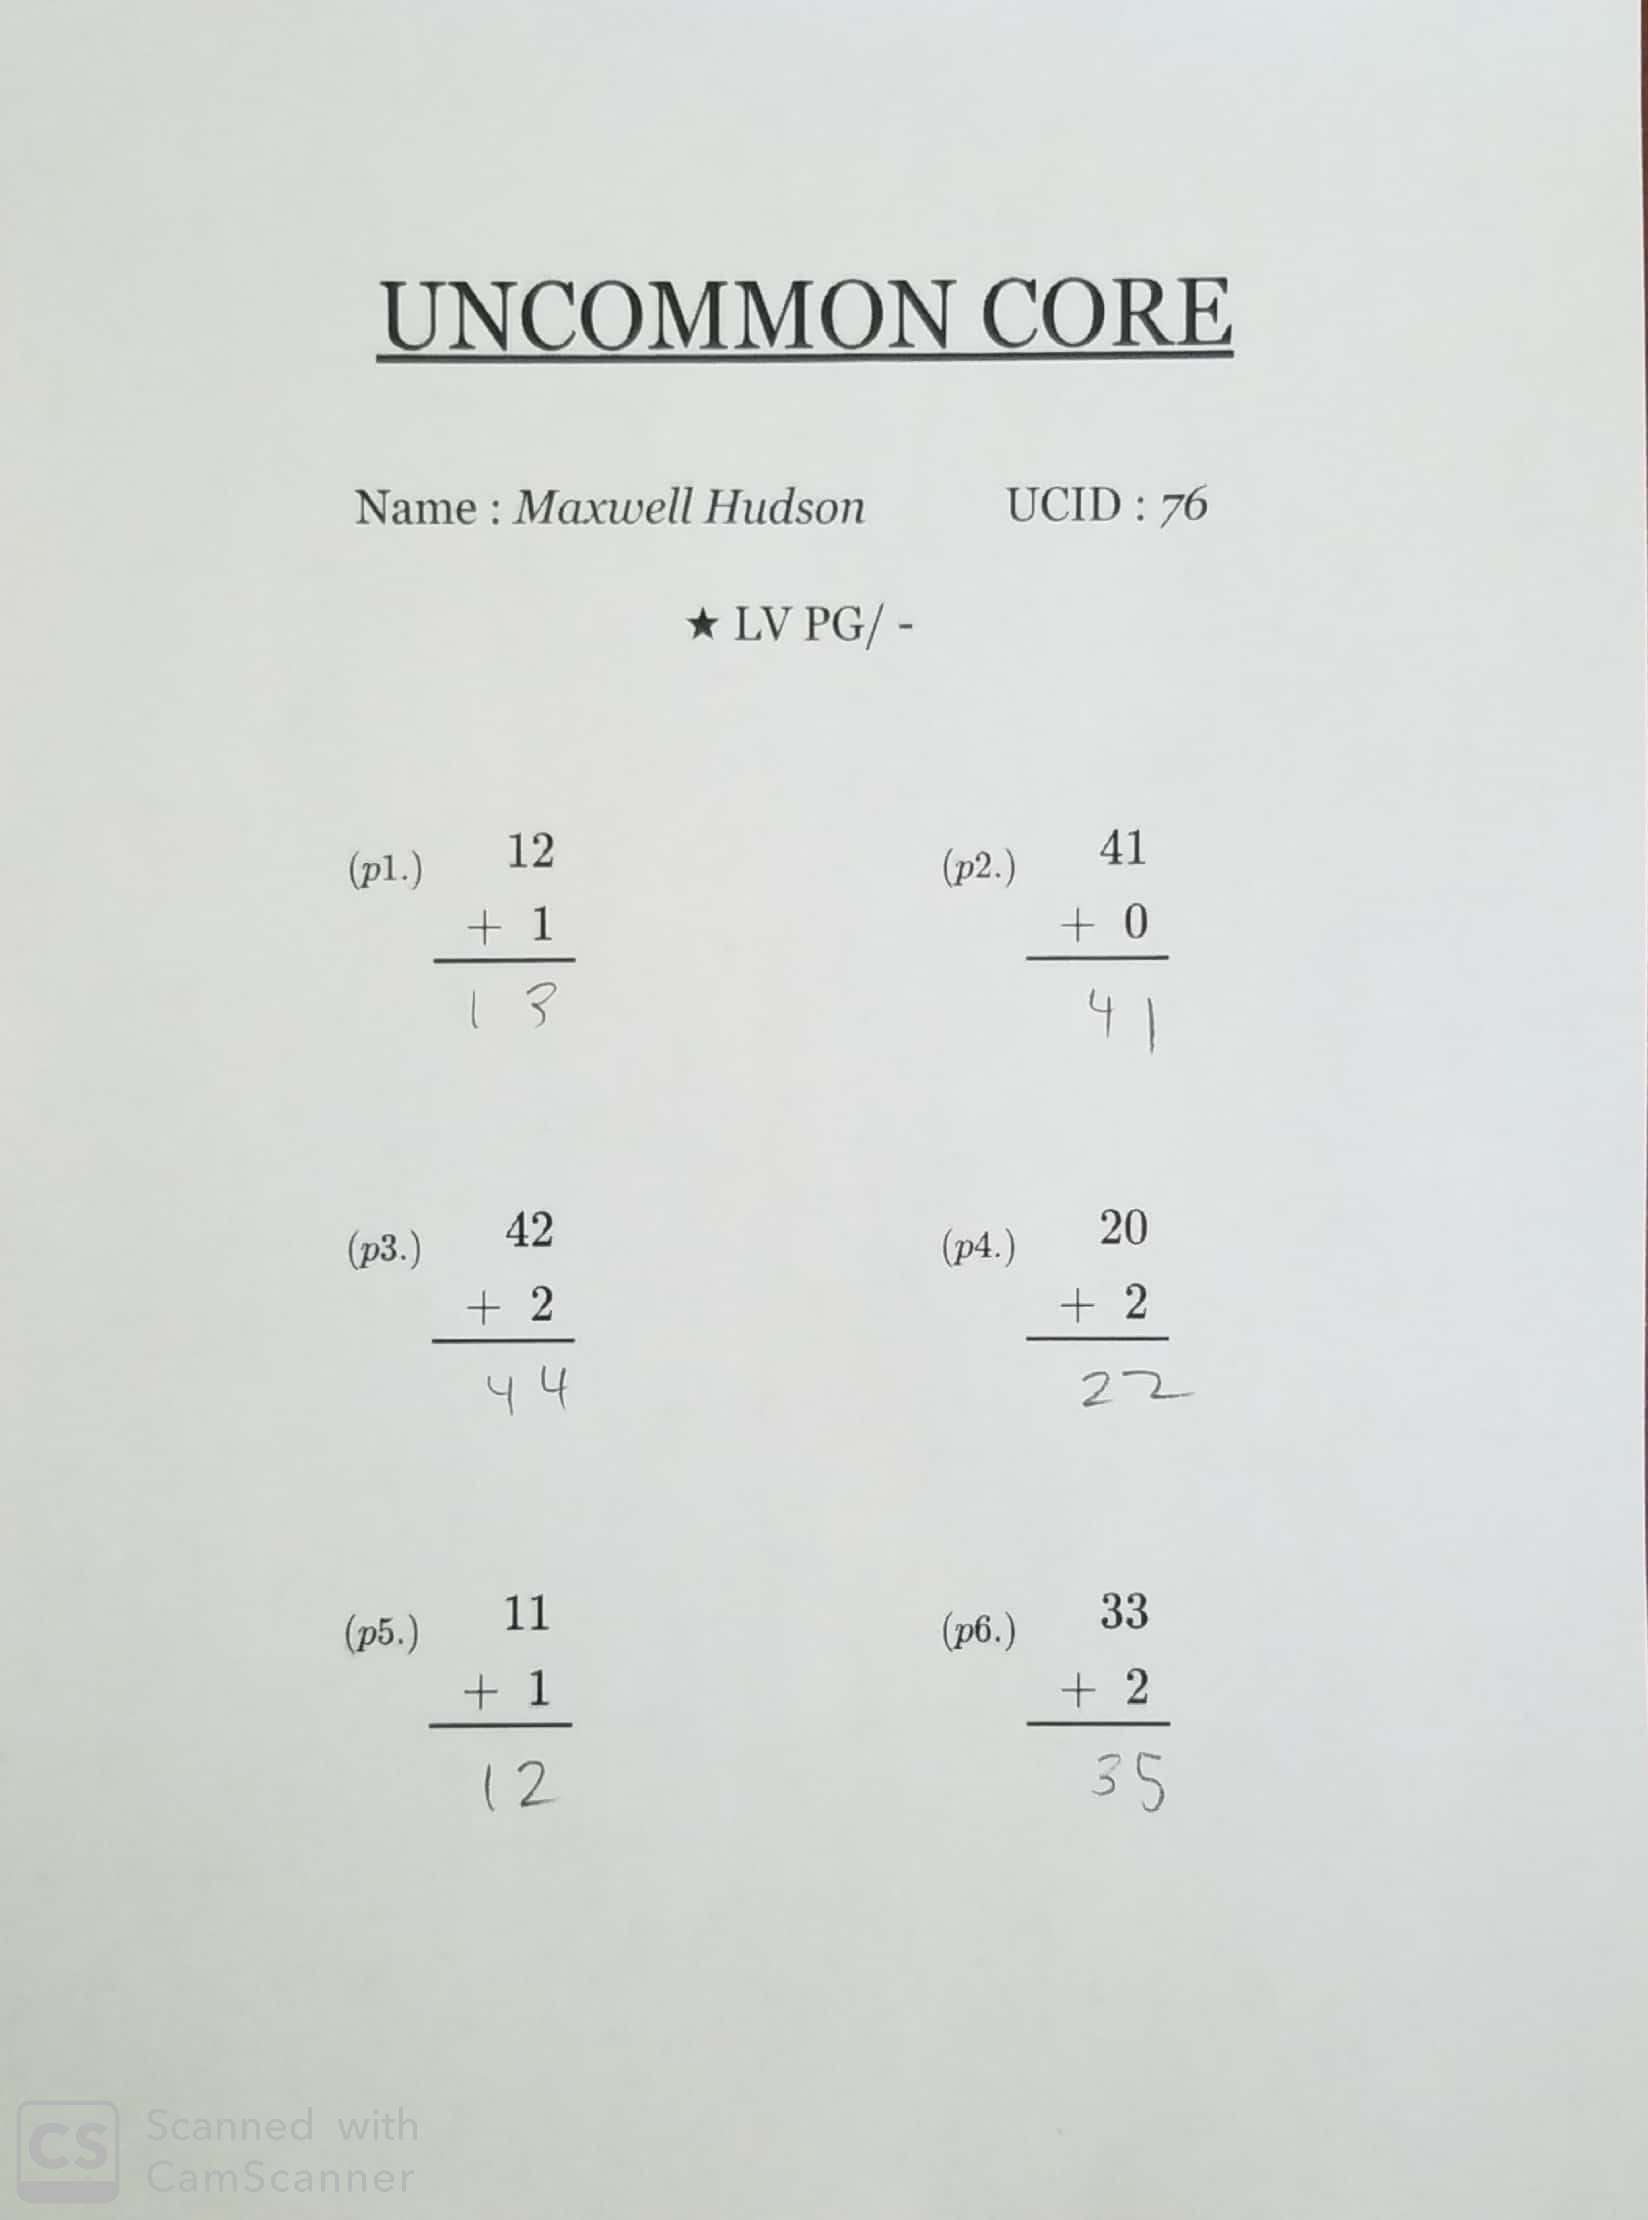 UNCOMMON CORE
Name : Maxwell Hudson UCID : 76
★ LV PG/ -
(p1.) 12
+ 1
13
(p2.) 41
+ 0
41
(p3.) 42
+ 2
44
(p4.) 20
+ 2
22
(p5.) 11
+ 1
12
(p6.) 33
+ 2
35
CS Scanned with
CamScanner